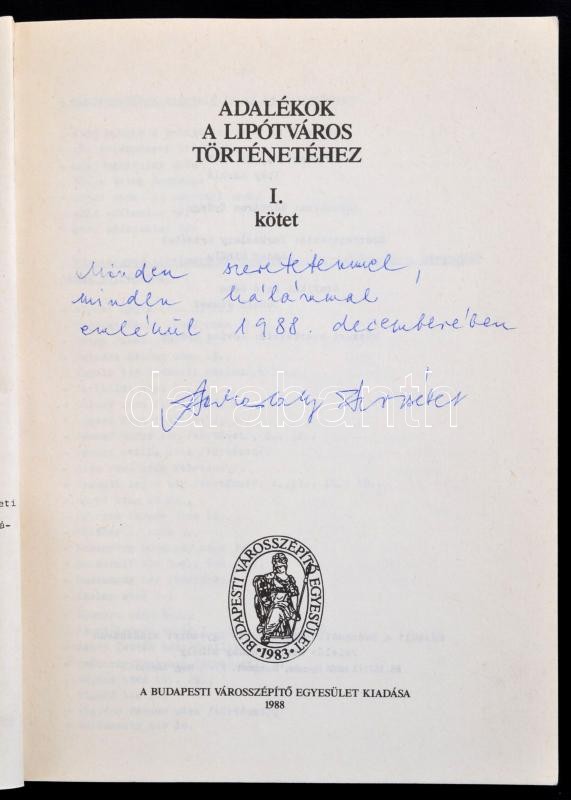 ADALÉKOK
A LIPÓTVÁROS
TÖRTÉNETÉHEZ
I.
kötet
Minden szeretetemmel,
minden hálámmal
emlékül 1988. decemberében
darabanth
eti
BUDAPESTI VÁROSSZÉPÍTŐ EGYESÜLET
·1983·
A BUDAPESTI VÁROSSZÉPÍTŐ EGYESÜLET KIADÁSA
1988